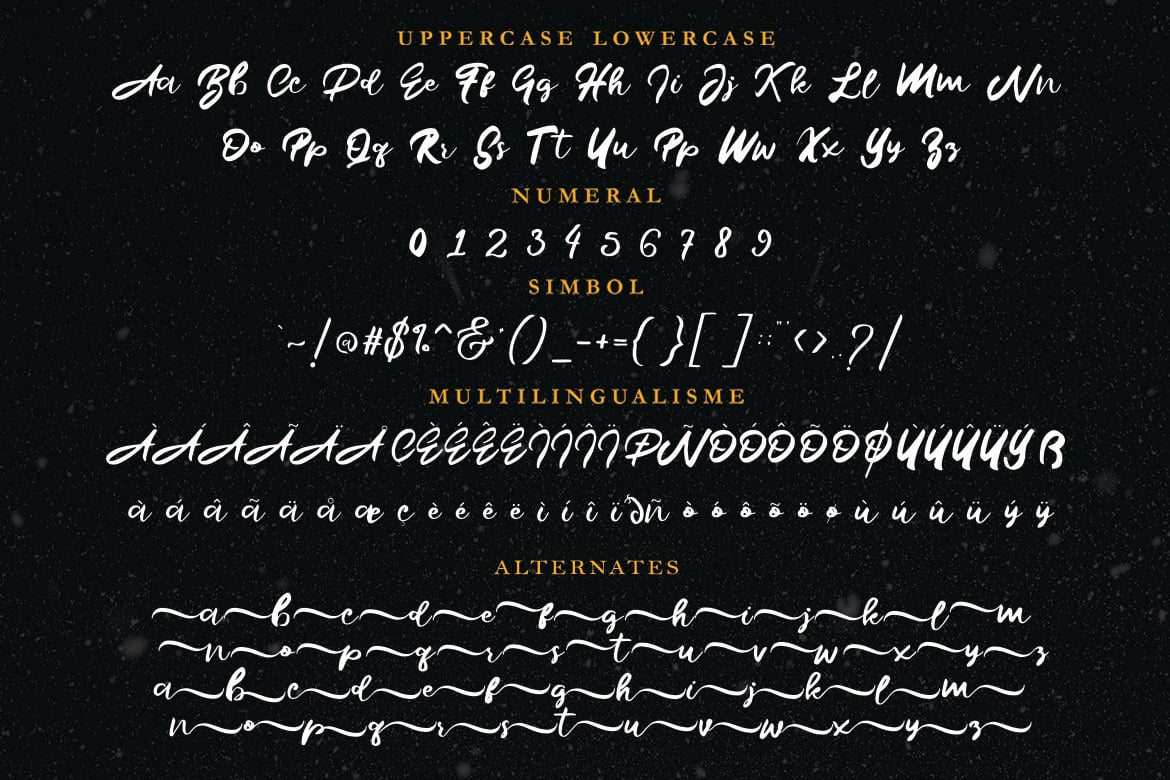 UPPERCASE LOWERCASE
Aa Bb Cc Dd Ee Ff Gg Hh Ii Jj Kk Ll Mm Nn
Oo Pp Qq Rr Ss Tt Uu Pp Ww Xx Yy Zz
NUMERAL
0 1 2 3 4 5 6 7 8 9
SIMBOL
`~!@#$%^&*()_-+={}[]:;"'<>,.?/
MULTILINGUALISME
ÀÁÂÃÄÅÇÈÉÊËÌÍÎÏÐÑÒÓÔÕÖØÙÚÛÜÝß
à á â ã ä å æ ç è é ê ë ì í î ï ð ñ ò ó ô õ ö ø ù ú û ü ý ÿ
ALTERNATES
a b c d e f g h i j k l m
n o p q r s t u v w x y z
a b c d e f g h i j k l m
n o p q r s t u v w x y z